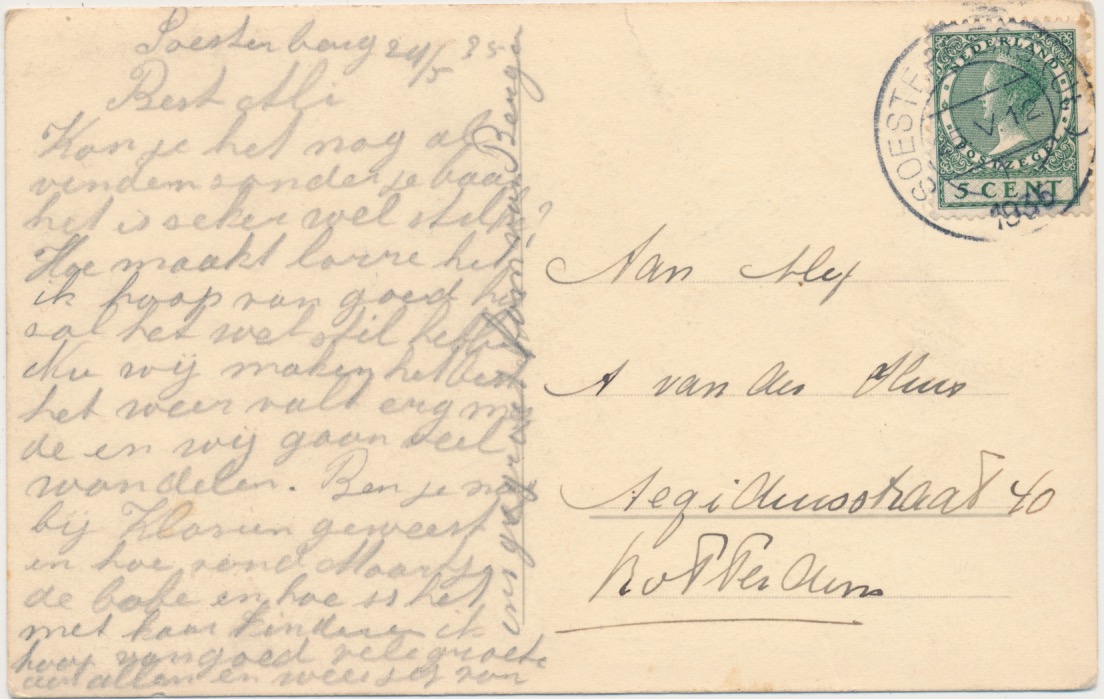 Soesterberg 24/5 35
Best Ali
Kon je het nog al
vinden sonder je baas
het is seker wel stil ?
Hoe maakt lorre het
ik hoop van goed hij
sal het wel stil hebben
Nu wij maken het best
het weer valt erg mee
de en wij gaan veel
wandelen. Ben je nog
bij Klasien geweest
en hoe vond
de babe en hoe is het
met haar kinderen ik
hoop van goed vele groete
aan allen en wees er van
ons gegroet
van Bergen
Aan Aly
A van der
Aegidiusstraat 40
Rotterdam
NEDERLAND
POSTZEGEL
5 CENT
SOESTERBERG
12